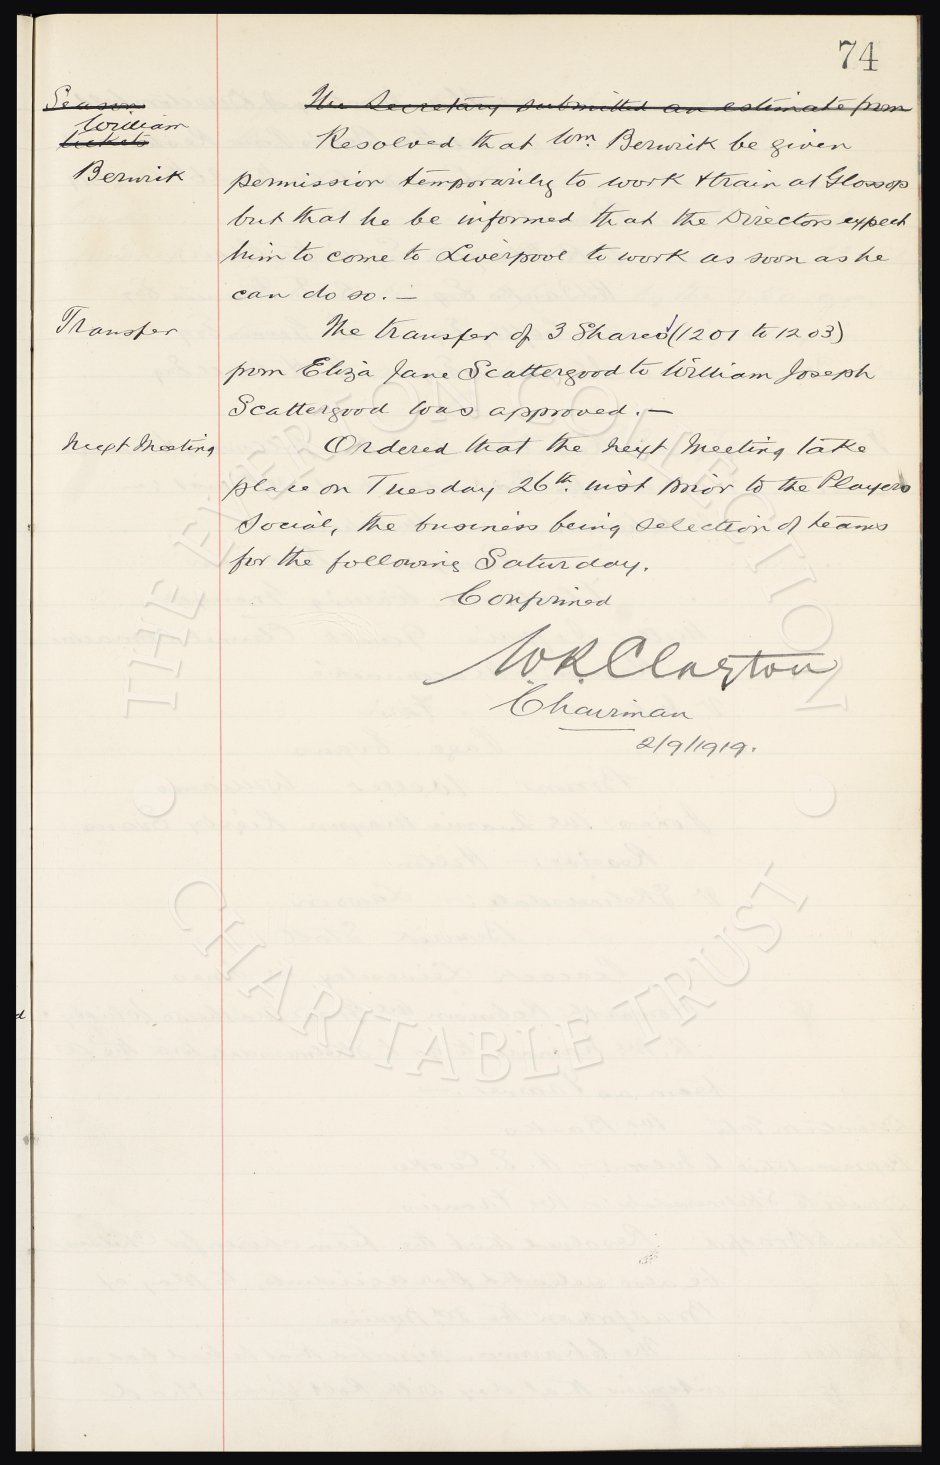 74
Season
The Secretary submitted an estimate from
William
tickets
Resolved that Wm. Berwick be given
Berwick
permission temporarily to work & train at Glossop
but that he be informed that the Directors expect
him to come to Liverpool to work as soon as he
can do so. —
Transfer
The transfer of 3 Shares (1201 to 1203)
from Eliza Jane Scattergood to William Joseph
Scattergood was approved. —
Next Meeting
Ordered that the next Meeting take
place on Tuesday 26th. inst prior to the Players
Social, the business being selection of teams
for the following Saturday.
Confirmed
W.R. Clayton
Chairman
2/9/1919.
THE EVERTON COLLECTION
CHARITABLE TRUST